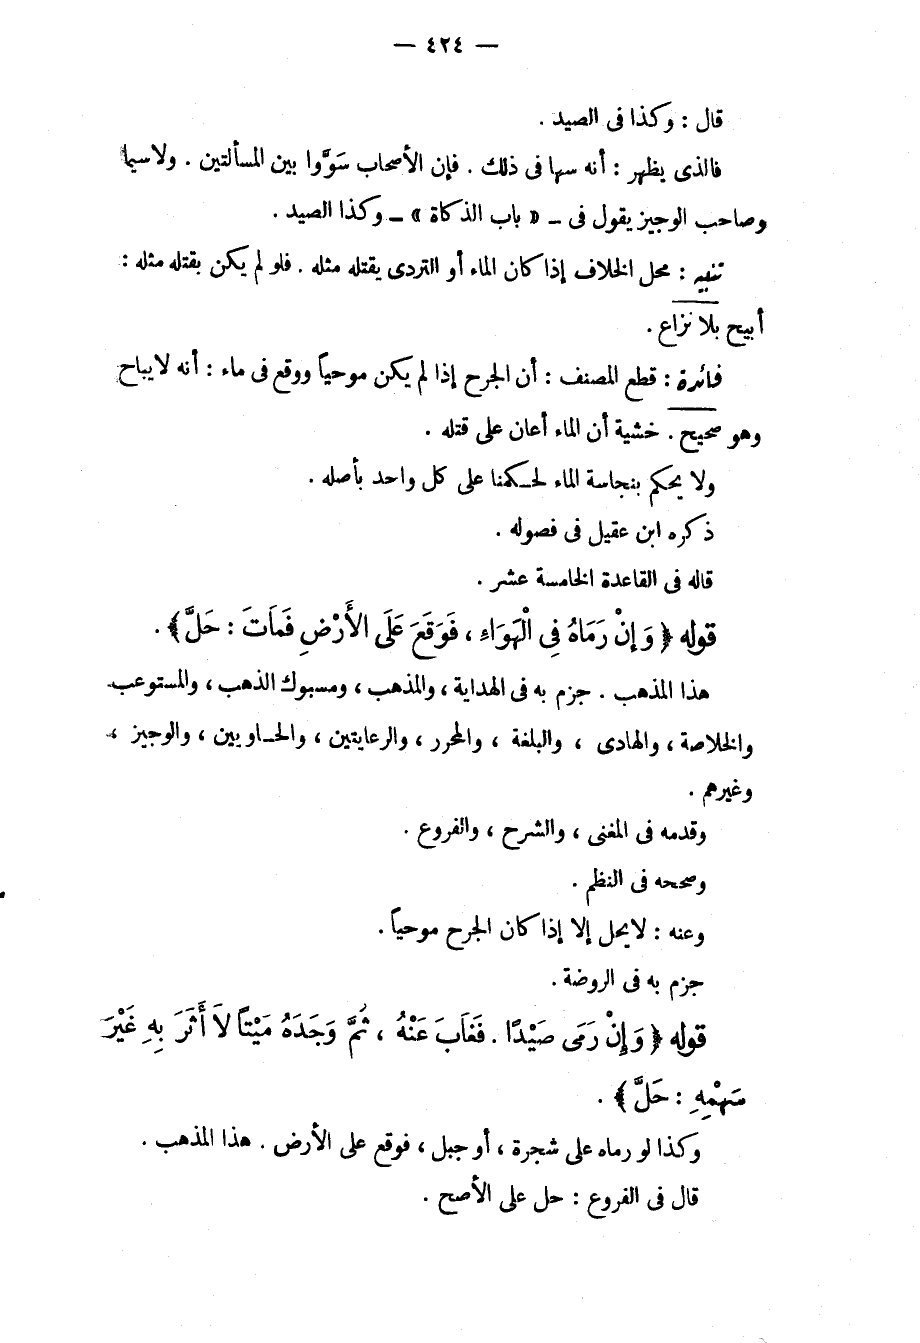 — ٤٢٤ —
قال : وكذا فى الصيد .
فالذى يظهر : أنه سها فى ذلك . فإن الأصحاب سَوَّوا بين المسألتين . ولاسيما
وصاحب الوجيز يقول فى ــ « باب الذكاة » ــ وكذا الصيد .
تنبيه : محل الخلاف إذا كان الماء أو التردى يقتله مثله . فلو لم يكن بقتله مثله :
أبيح بلا نزاع .
فائدة : قطع المصنف : أن الجرح إذا لم يكن موحياً ووقع فى ماء : أنه لايباح
وهو صحيح . خشية أن الماء أعان على قتله .
ولا يحكم بنجاسة الماء لحكمنا على كل واحد بأصله .
ذكره ابن عقيل فى فصوله .
قاله فى القاعدة الخامسة عشر .
قوله ﴿ وَإِنْ رَمَاهُ فِى الْهَوَاءِ ، فَوَقَعَ عَلَى الأَرْضِ فَمَاتَ : حَلَّ ﴾ .
هذا المذهب . جزم به فى الهداية ، والمذهب ، ومسبوك الذهب ، والمستوعب
والخلاصة ، والهادى ، والبلغة ، والمحرر ، والرعايتين ، والحـاويين ، والوجيز ،
وغيرهم .
وقدمه فى المغنى ، والشرح ، والفروع .
وصححه فى النظم .
وعنه : لايحل إلا إذا كان الجرح موحياً .
جزم به فى الروضة .
قوله ﴿ وَإِنْ رَمَى صَيْدًا . فَغَابَ عَنْهُ ، ثُمَّ وَجَدَهُ مَيْتًا لاَ أَثَرَ بِهِ غَيْرَ
سَهْمِهِ : حَلَّ ﴾ .
وكذا لو رماه على شجرة ، أو جبل ، فوقع على الأرض . هذا المذهب .
قال فى الفروع : حل على الأصح .